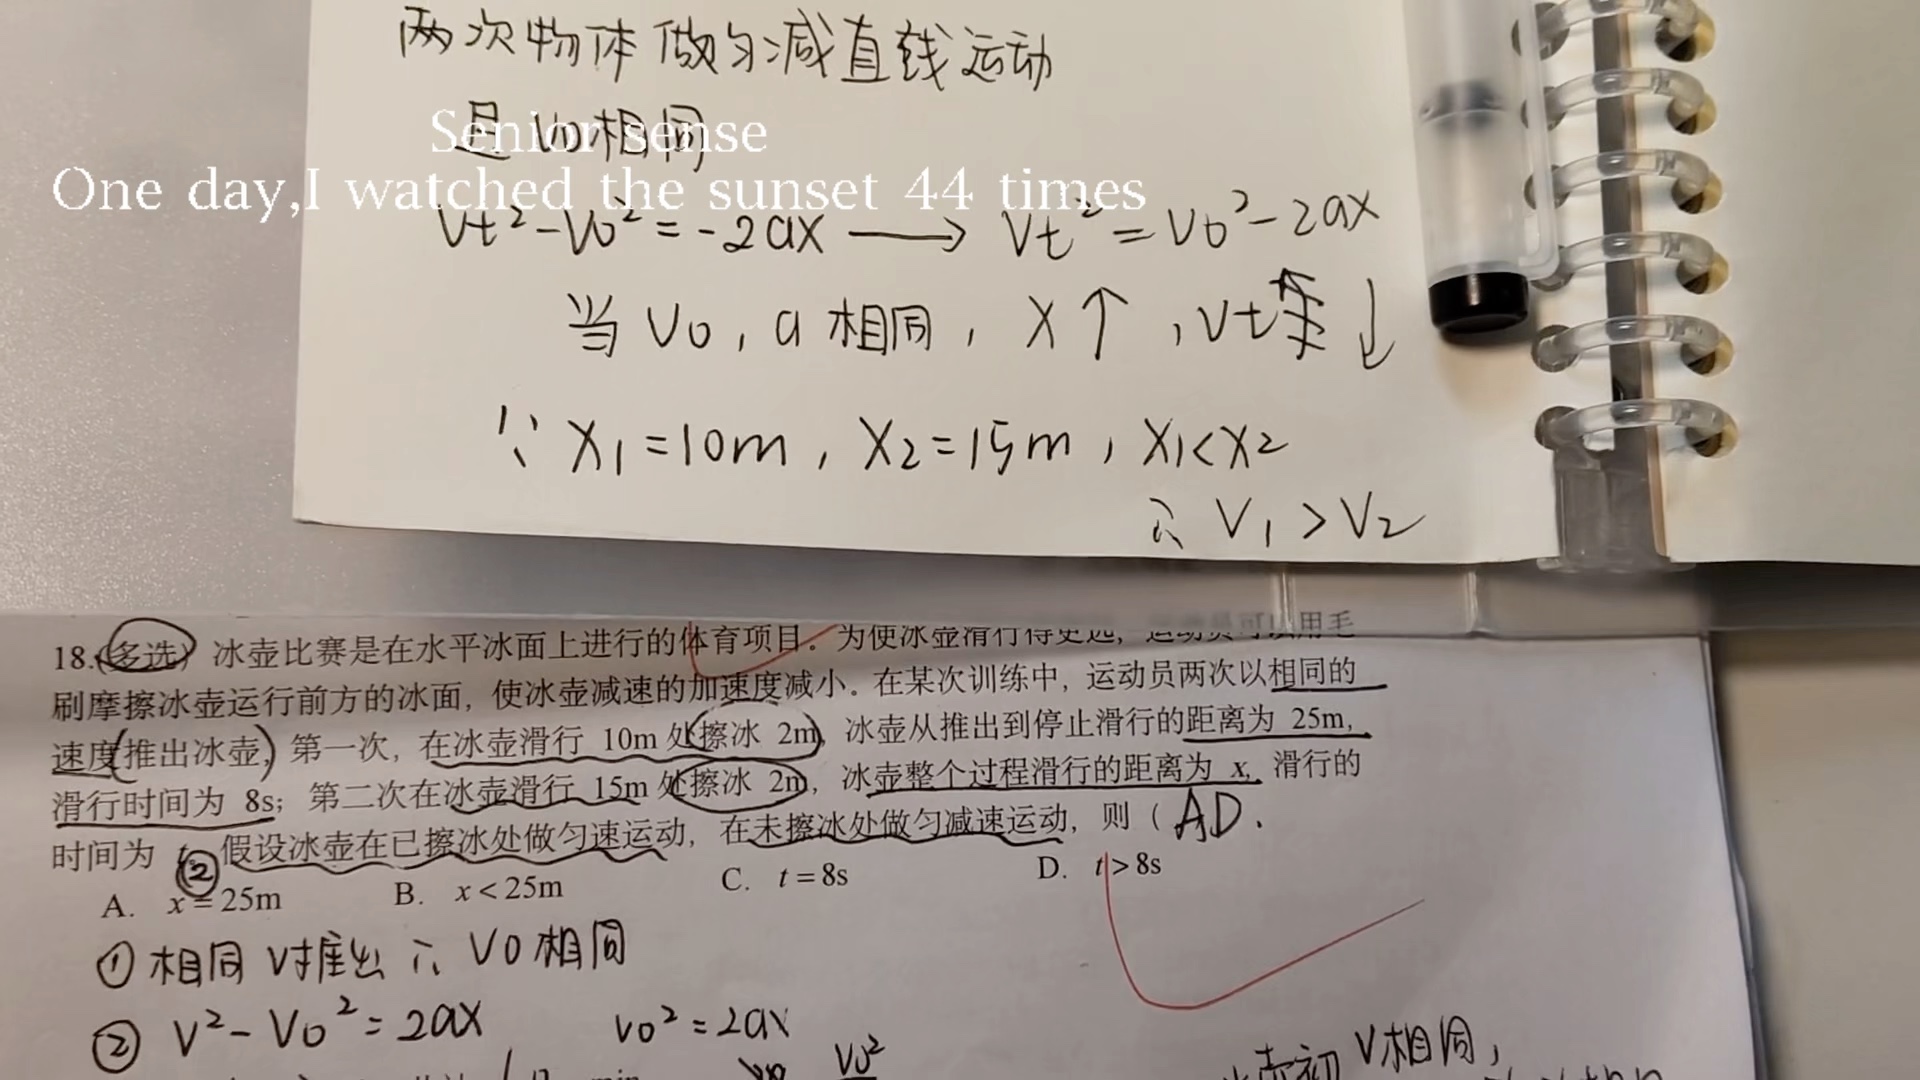 两次物体做匀减直线运动
且V0相同
Senior sense
One day,I watched the sunset 44 times
Vt²-V0²=-2ax → Vt²=V0²-2ax
当V0,a相同,X↑,Vt↓
∵X1=10m,X2=15m,X1<X2
∴V1>V2
18.(多选) 冰壶比赛是在水平冰面上进行的体育项目。为使冰壶滑行得更远，运动员可以用毛
刷摩擦冰壶运行前方的冰面，使冰壶减速的加速度减小。在某次训练中，运动员两次以相同的
速度(推出冰壶,)第一次，在冰壶滑行 10m 处擦冰 2m，冰壶从推出到停止滑行的距离为 25m，
滑行时间为 8s；第二次在冰壶滑行 15m 处擦冰 2m，冰壶整个过程滑行的距离为 x，滑行的
时间为 ② 假设冰壶在已擦冰处做匀速运动，在未擦冰处做匀减速运动，则（AD.
A. x=25m B. x<25m C. t=8s D. t>8s
①相同V推出∴V0相同
②V²-V0²=2ax V0²=2ax
V0²
初V相同,